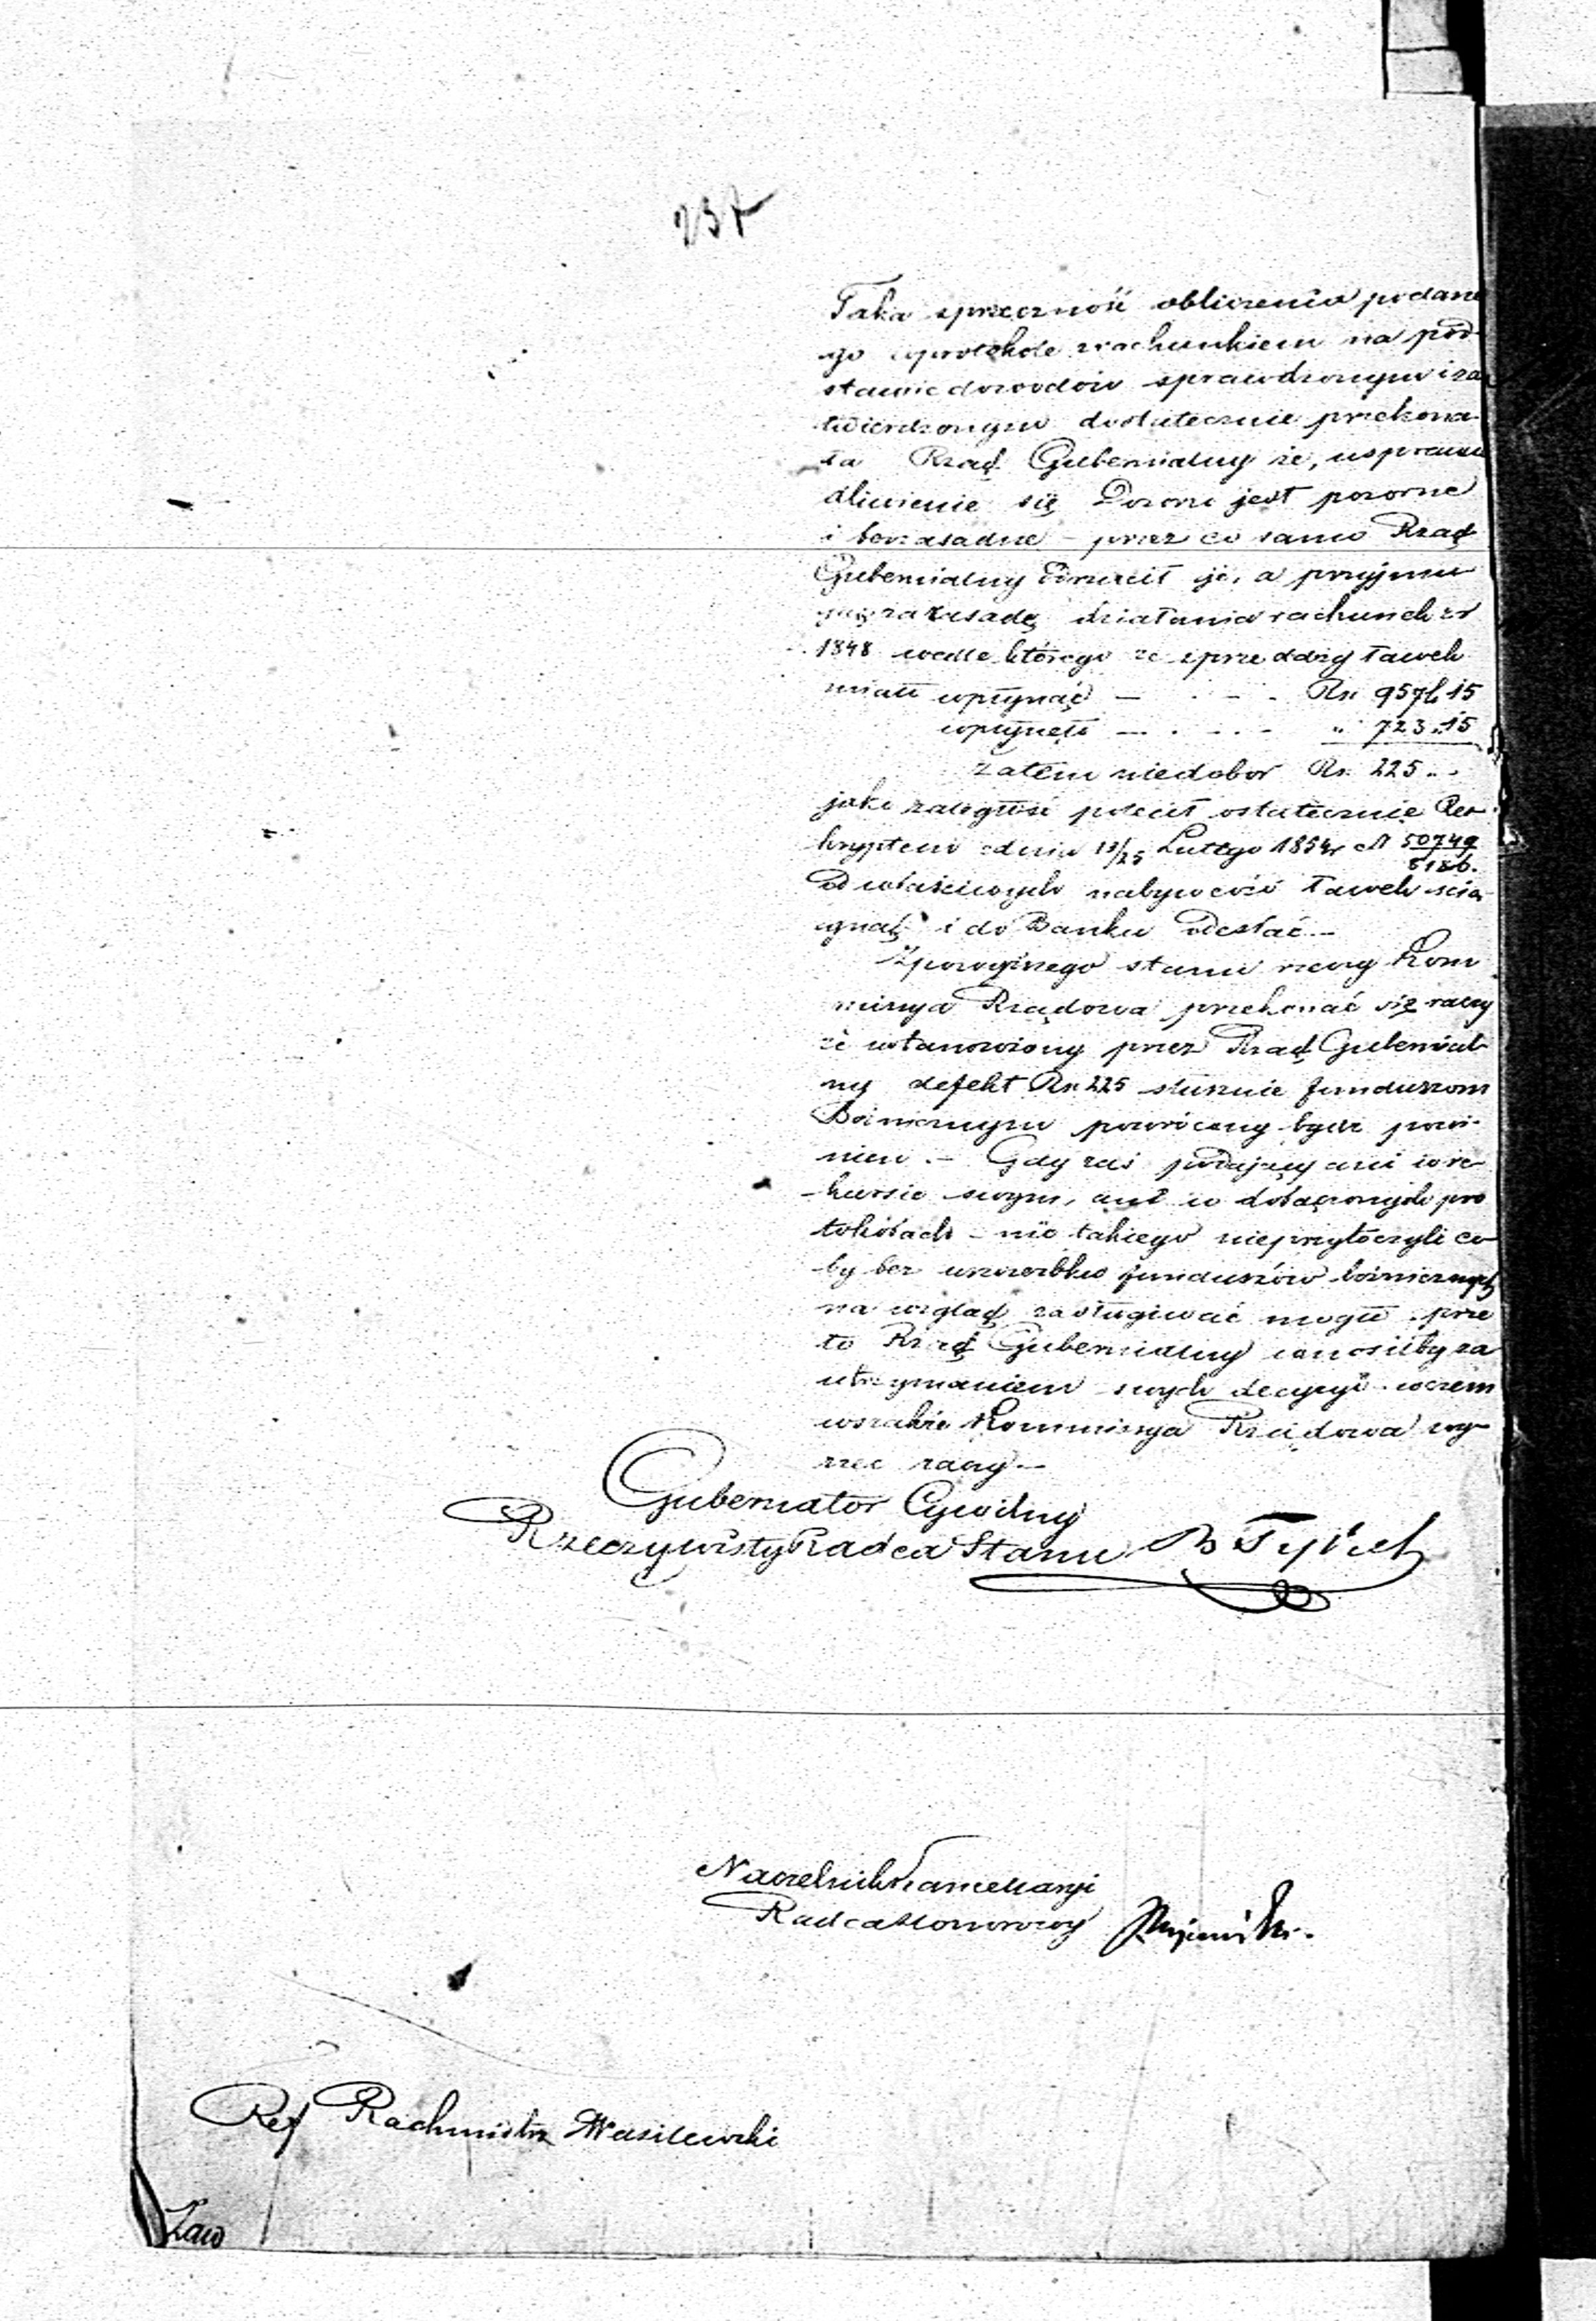 237
Taka sprzeczność obliczenia podane
go w protokole z rachunkiem na pod
stawie dowodów sprawdzonym i za
twierdzonym dostatecznie przekona
ła Rząd Gubernialny że, usprawie
dliwienie się Dozoru jest pozorne
i bezzasadne – przez co samo Rząd
Gubernialny odrzucił je, a przyjmu
jąc za zasadę działania rachunek z r
1848 wedle którego ze sprzedaży ławek
miało wpłynąć — . — . Rs. 957 k 15
wpłynęło — . — . — „ 723 „ 15
zatem niedobor Rs. 225 „ .
jako zaległość polecił ostatecznie Res
kryptem z dnia 13/25 Lutego 1854 r N 50749/8186.
od właściwych nabywców ławek ścią
gnąć i do Banku odesłać. –
Z powyższego stanu rzeczy Kom
missya Rządowa przekonać się raczy
że ustanowiony przez Rząd Gubernial
ny defekt Rs. 225 słusznie funduszom
Bożnicznym powrócony bydź powi-
nien. – Gdy zaś podający ani w re
kursie swym, ani w dołączonych pro
tokółach – nic takiego nieprzytoczyli co
by bez uszczerbku funduszów bożnicznych
na wzgląd zasługiwać mogło . prze
to Rząd Gubernialny wnosiłby za
utrzymaniem swych decyzyi. w czem
wszakże Kommissya Rządowa wy-
rzec raczy –
Gubernator Cywilny
Rzeczywisty Radca Stanu
Naczelnik Kancellaryi
Radca Honorowy
Ref Rachmistrz Wasilewski
Zaw